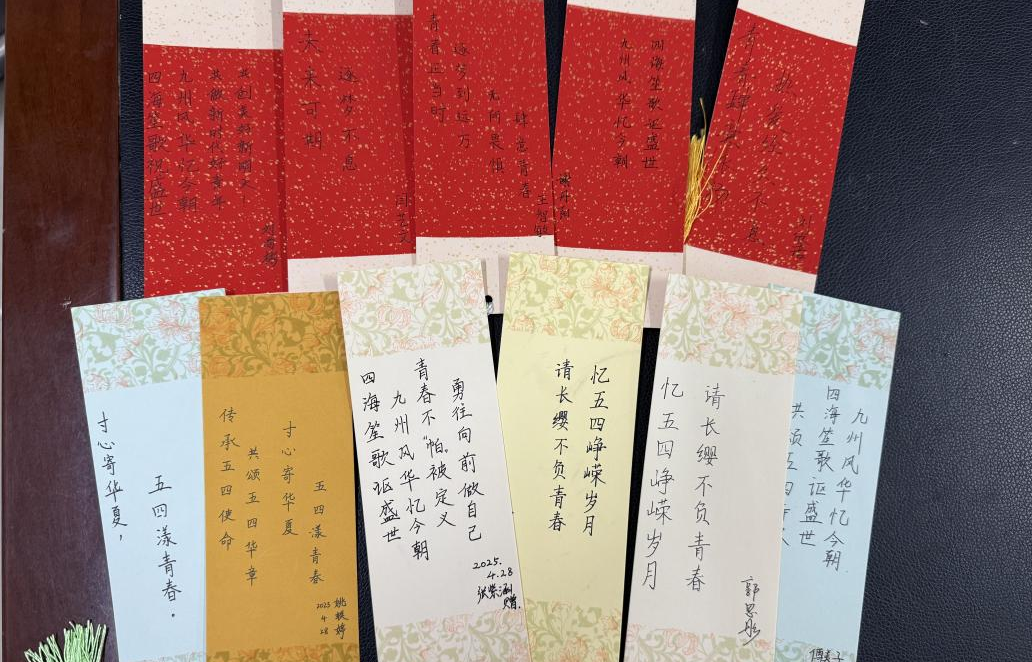 共创美好新明天！
共做新时代好青年
九州风华忆今朝
四海笙歌祝盛世
逐梦不息
未来可期
肆意青春
无何畏惧
逐梦到远方
青春正当时
王智敏
四海笙歌讴盛世
九州风华忆今朝
热爱经久不息
寸心寄华夏，
五四漾青春。
五四漾青春
寸心寄华夏
共颂五四华章
传承五四使命
2025
4.28
姚樱婷
勇往向前做自己
青春不“怕”被定义
九州风华忆今朝
四海笙歌讴盛世
2025.
4.28
张紫涵
赠.
忆五四峥嵘岁月
请长缨不负青春
请长缨不负青春
忆五四峥嵘岁月
郭思彤
九州风华忆今朝.
四海笙歌讴盛世
共颂五四